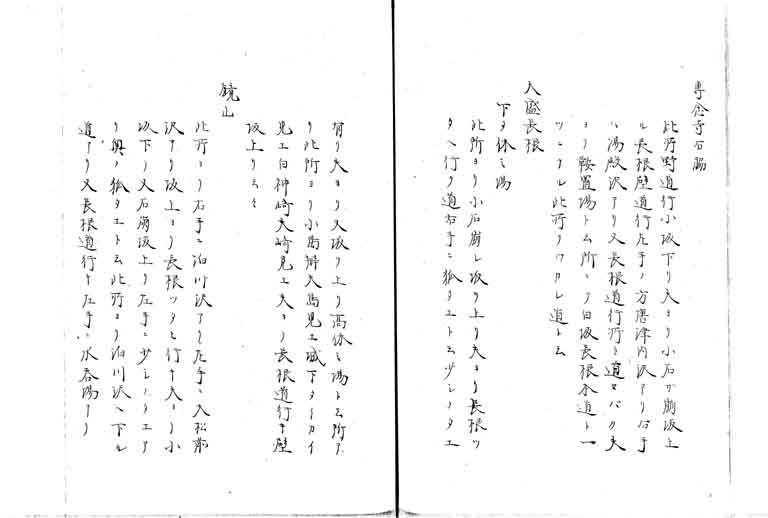 専念寺石脇
此所野道行小坂下リ夫ヨリ小石カ崩坂上
ル長根壁道行左手ノ方唐津内沢アリ右手
ハ湯殿沢アリ又長根道行所々道セバク夫
ヨリ鞍置場ト云所ニテ白坂長根本道ト一
ツニナル此所ヲワカレ道ト云
大盛長根
下タ休ミ場
此所ヨリ小石崩レ坂リ上リ夫ヨリ長根ツ
タヘ行ク道右手ニ狐タエト云少シノタエ
有リ夫ヨリ又坂リ上リ高休ミ場ト云所ア
リ此所ヨリ小島辨天島見エ城下ターカイ
見エ白神崎大崎見エ夫ヨリ長根道行キ壁
坂上リ云々
鏡山
此所ヨリ右手ニ泊川沢アリ左手ニ大松前
沢アリ坂上ヨリ長根ツタヒ行キ夫ヨリ小
坂下リ又石崩坂上リ左手ニ少シノタエア
リ奥ノ狐タエト云此所ヨリ泊川沢ヘ下ル
道アリ又長根道行キ左手ニ水呑場アリ